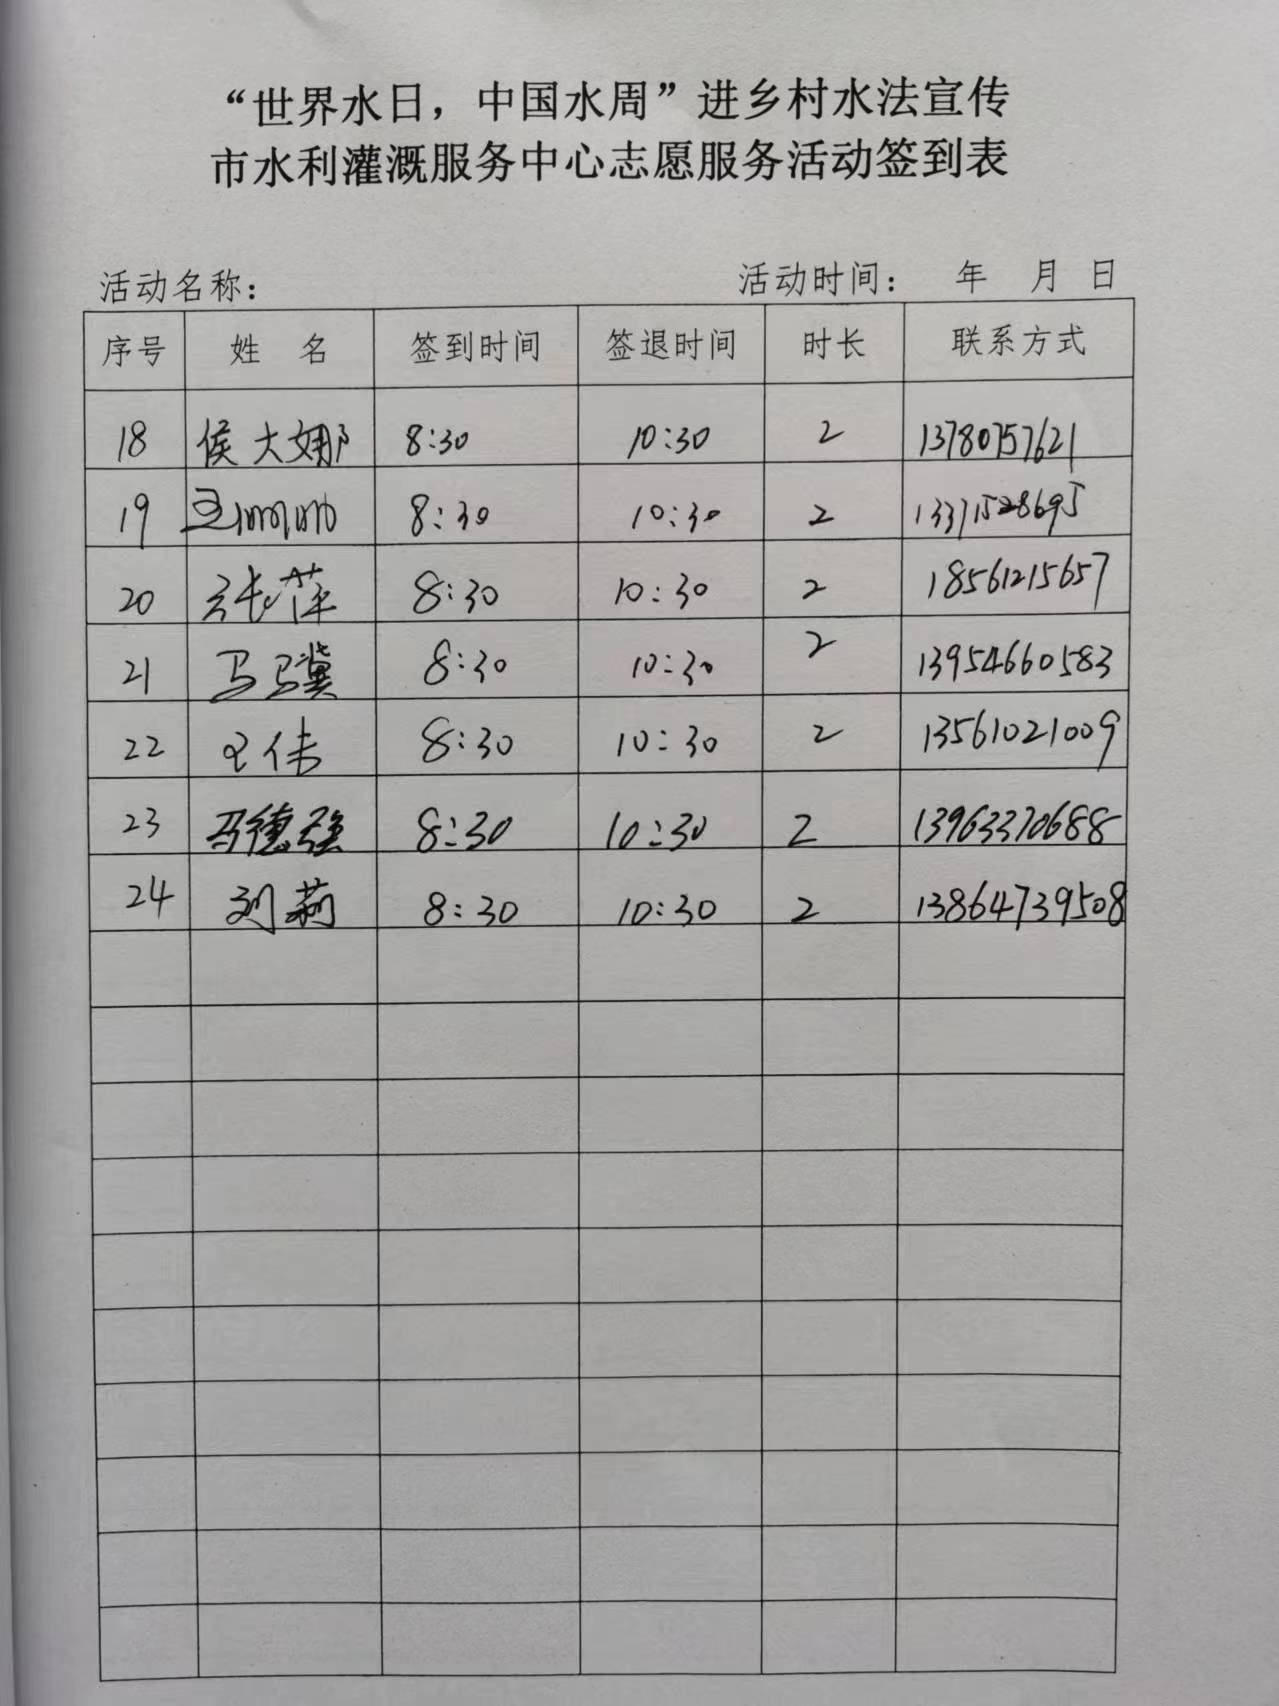 “世界水日，中国水周”进乡村水法宣传
市水利灌溉服务中心志愿服务活动签到表
活动名称： 活动时间： 年 月 日
序号 姓 名 签到时间 签退时间 时长 联系方式
18 侯大娜 8:30 10:30 2 13780757621
19 8:30 10:30 2 13371528695
20 张萍 8:30 10:30 2 18561215657
21 马骥 8:30 10:30 2 13954660583
22 王伟 8:30 10:30 2 13561021009
23 马德强 8:30 10:30 2 13963370688
24 刘莉 8:30 10:30 2 13864739508